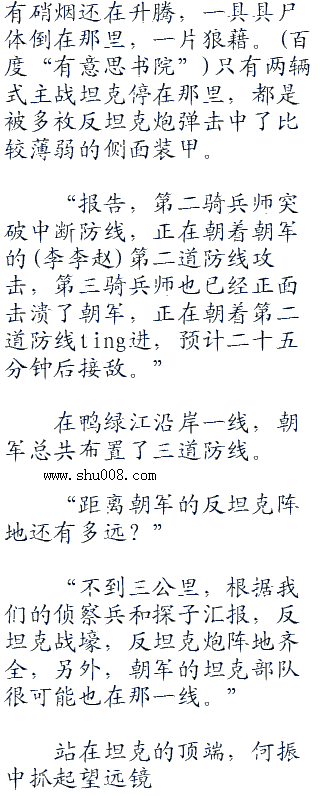 有硝烟还在升腾，一具具尸
体倒在那里，一片狼藉。(百
度“有意思书院”)只有两辆
式主战坦克停在那里，都是
被多枚反坦克炮弹击中了比
较薄弱的侧面装甲。
“报告，第二骑兵师突
破中断防线，正在朝着朝军
的(李李赵)第二道防线攻
击，第三骑兵师也已经正面
击溃了朝军，正在朝着第二
道防线ting进，预计二十五
分钟后接敌。”
在鸭绿江沿岸一线，朝
军总共布置了三道防线。
www.shu008.com
“距离朝军的反坦克阵
地还有多远？”
“不到三公里，根据我
们的侦察兵和探子汇报，反
坦克战壕，反坦克炮阵地齐
全，另外，朝军的坦克部队
很可能也在那一线。”
站在坦克的顶端，何振
中抓起望远镜